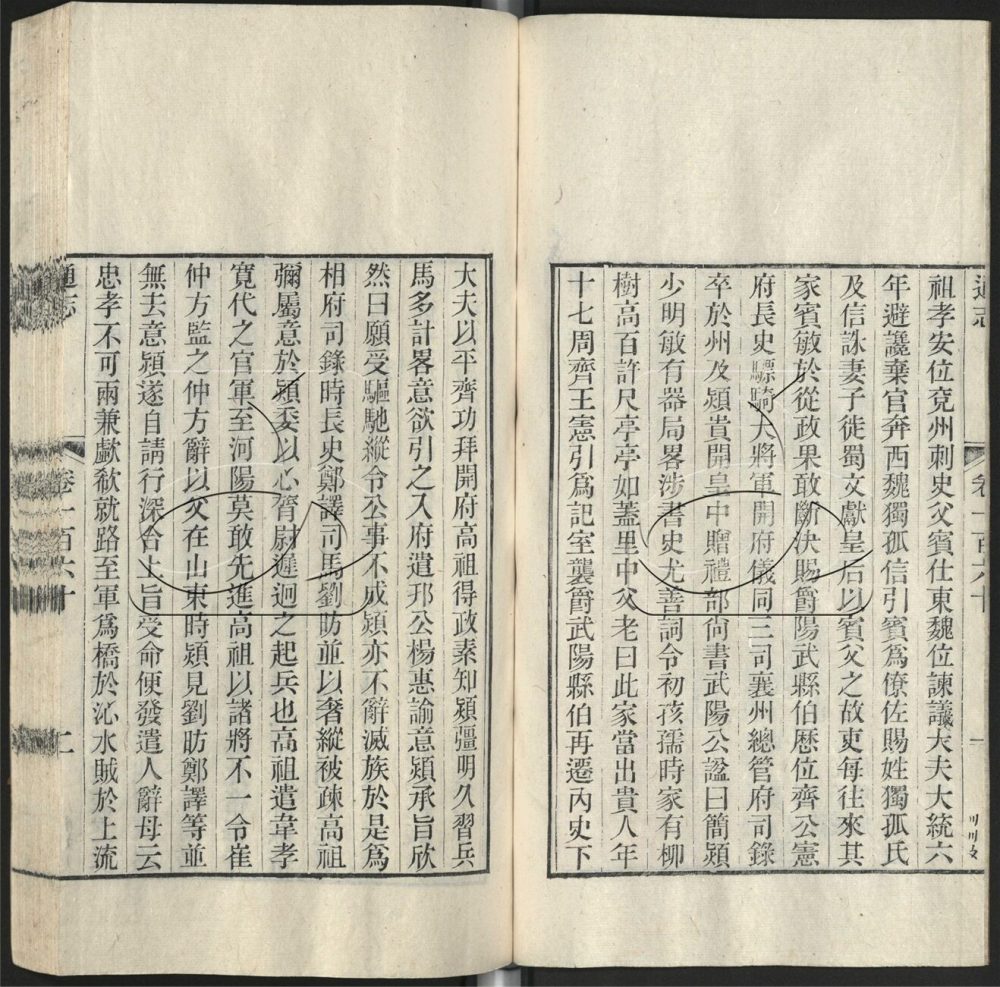 通志
卷一百六十
一
祖孝安位兗州刺史父賓仕東魏位諫議大夫大統六
年避讒棄官奔西魏獨孤信引賓爲僚佐賜姓獨孤氏
及信誅妻子徙蜀文獻皇后以賓父之故吏每往來其
家賓敏於從政果敢斷決賜爵陽武縣伯歷位齊公憲
府長史驃騎大將軍開府儀同三司襄州總管府司錄
卒於州及熲貴開皇中贈禮部尙書武陽公諡曰簡熲
少明敏有器局畧涉書史尤善詞令初孩孺時家有柳
樹高百許尺亭亭如蓋里中父老曰此家當出貴人年
十七周齊王憲引爲記室襲爵武陽縣伯再遷內史下
大夫以平齊功拜開府高祖得政素知熲彊明久習兵
馬多計畧意欲引之入府遣邗公楊惠諭意熲承旨欣
然曰願受驅馳縱令公事不成熲亦不辭滅族於是爲
相府司錄時長史鄭譯司馬劉昉並以奢縱被疎高祖
彌屬意於熲委以心膂尉遲迥之起兵也高祖遣韋孝
寬伐之官軍至河陽莫敢先進高祖以諸將不一令崔
仲方監之仲方辭以父在山東時熲見劉昉鄭譯等並
無去意熲遂自請行深合上旨受命便發遣人辭母云
忠孝不可兩兼歔欷就路至軍爲橋於沁水賊於上流
通志
卷一百六十
二